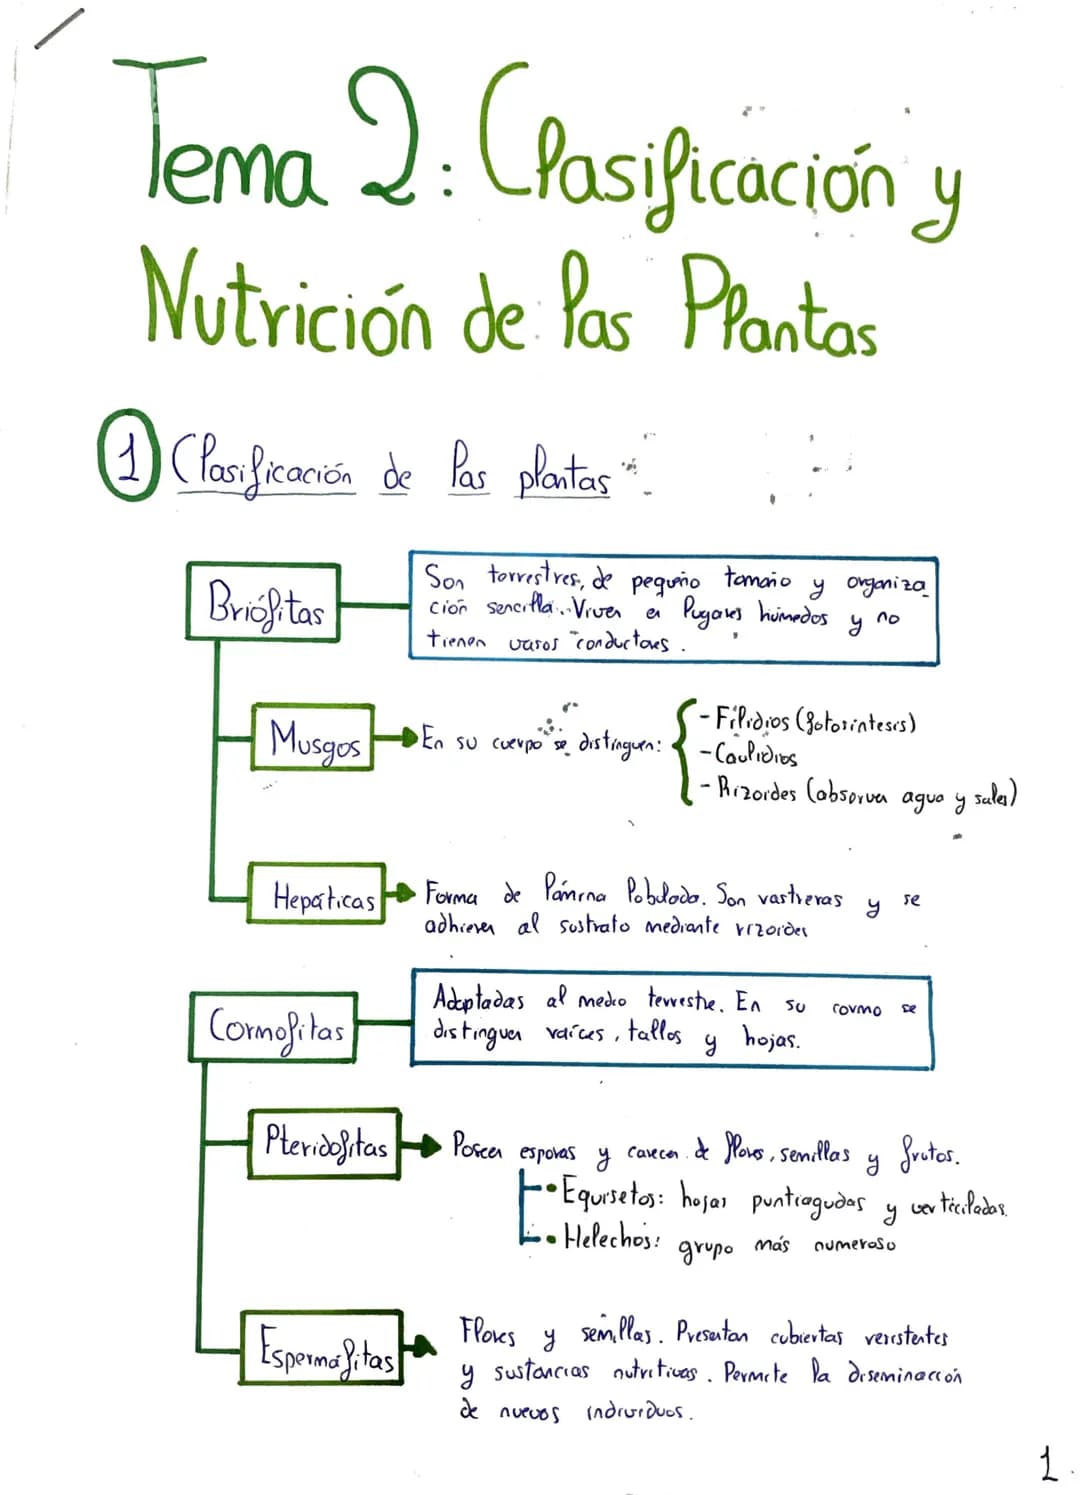 Tema 2: Clasificación y
Nutrición de las Plantas
1 Clasificación de las plantas
Briófitas
Son torrestres, de pequeño tamaño y organiza
ción sencilla. Viven en lugares húmedos y no
tienen vasos conductores.
Musgos
En su cuerpo se distinguen:
- Filidios (fotosíntesis)
- Caulidios
- Rizoides (absorven agua y sales)
Hepáticas
Forma de lámina lobulada. Son rastreras y se
adhieren al sustrato mediante rizoides
Cormofitas
Adaptadas al medio terrestre. En su cormo se
distinguen raíces, tallos y hojas.
Pteridofitas
Poseen esporas y carecen de flores, semillas y frutos.
• Equisetos: hojas puntiagudas y verticiladas.
• Helechos: grupo más numeroso
Espermafitas
Flores y semillas. Presentan cubiertas resistentes
y sustancias nutritivas. Permite la diseminación
de nuevos individuos.
1.